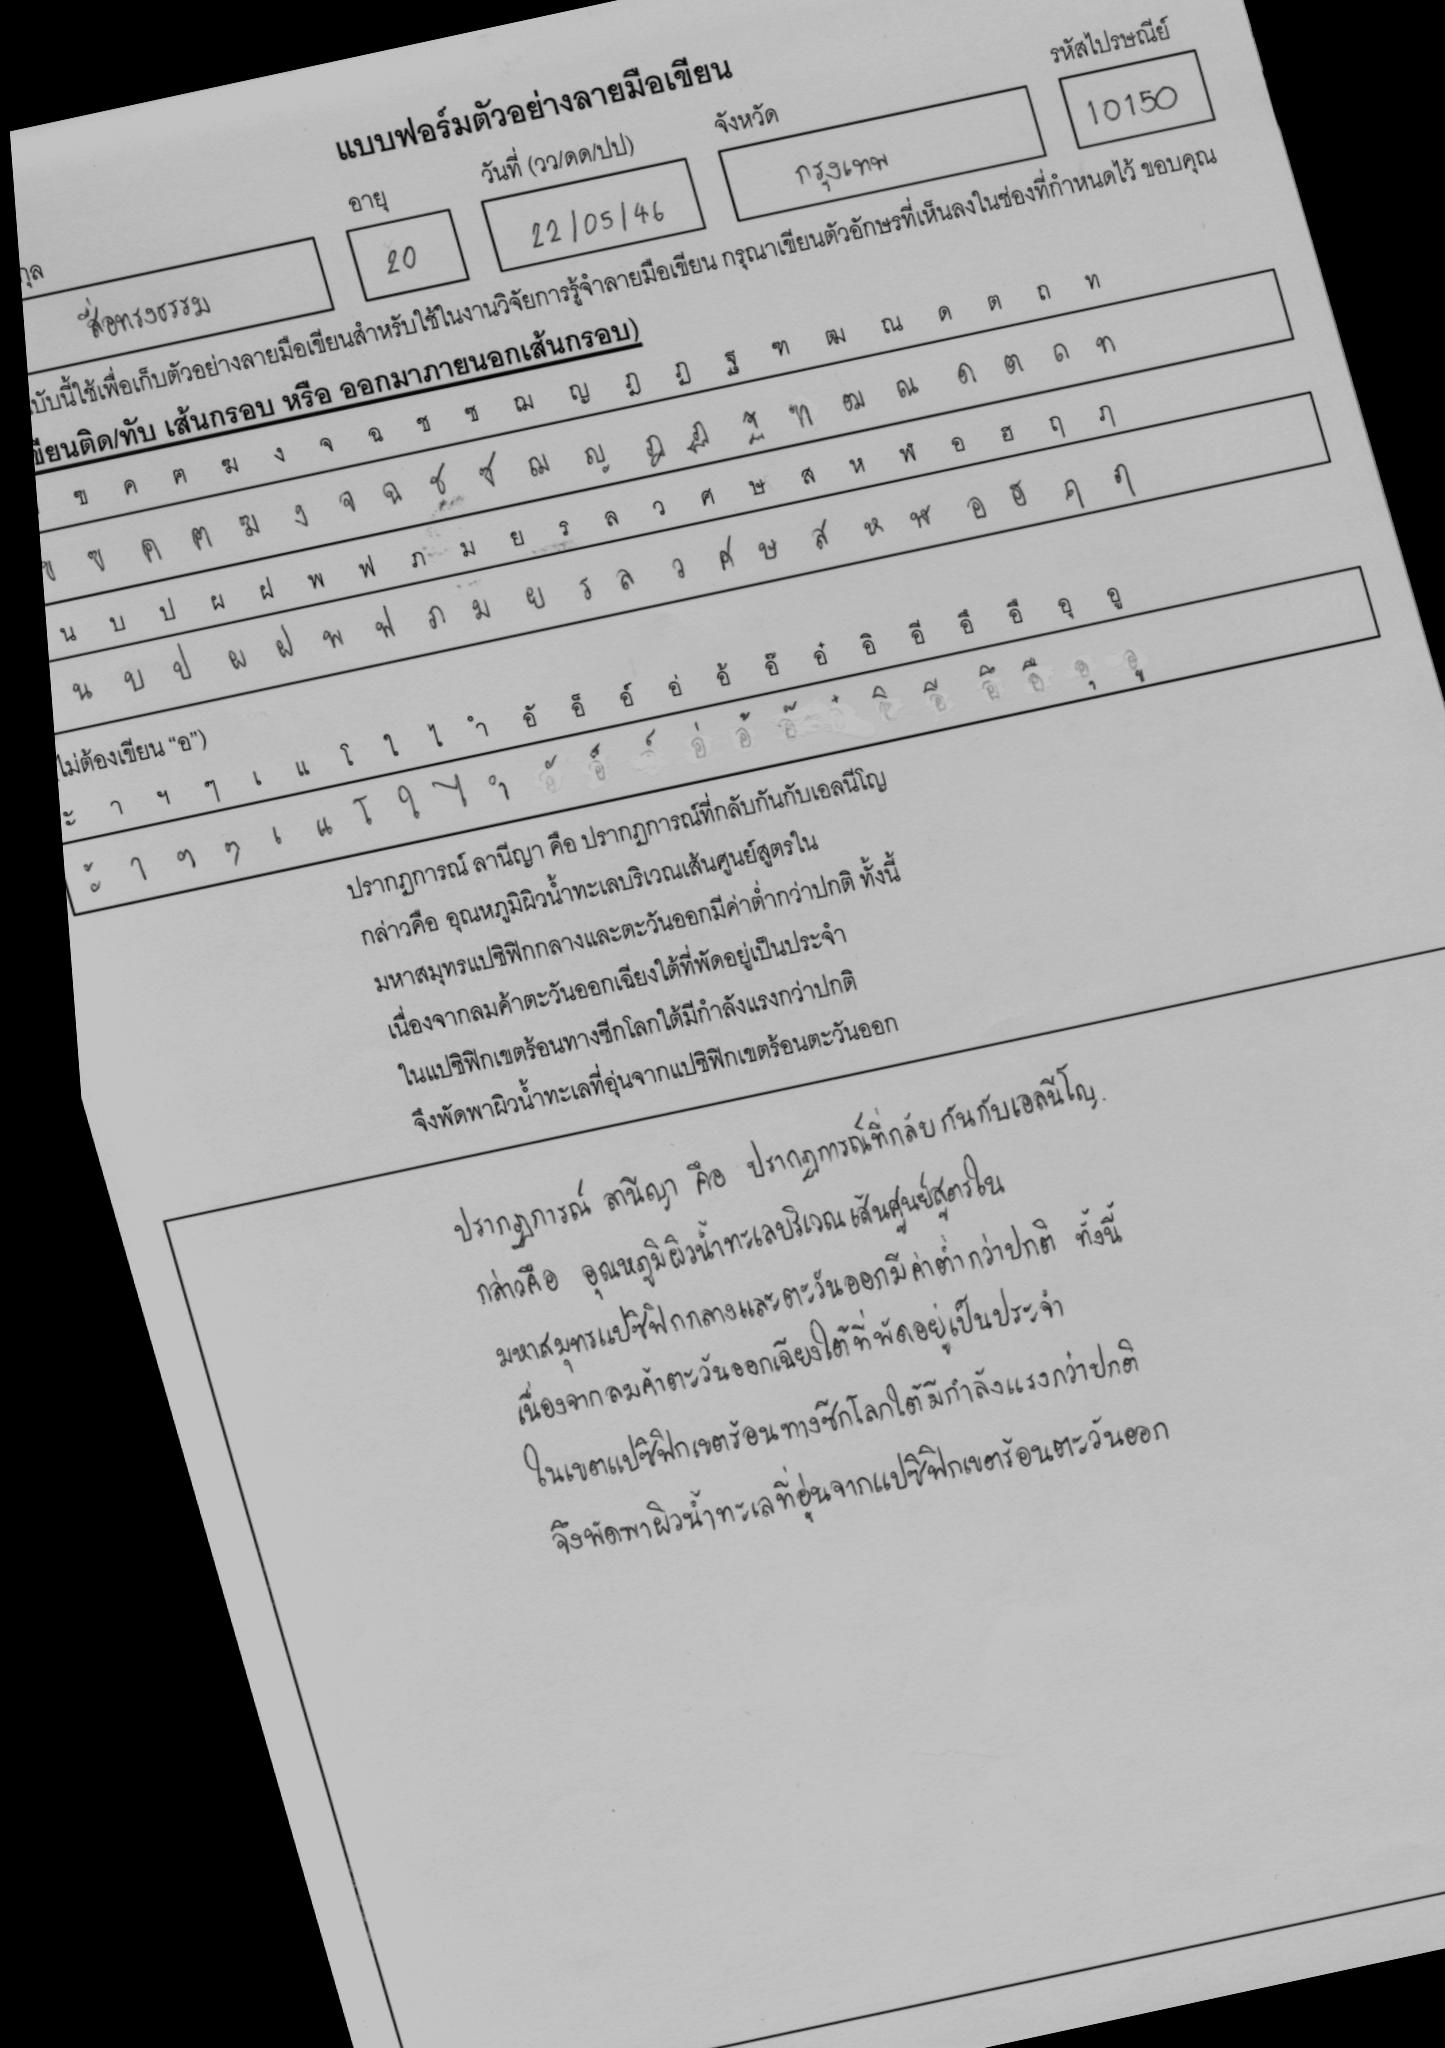 แบบฟอร์มตัวอย่างลายมือเขียน
อายุ วันที่ (วว/ดด/ปป) จังหวัด รหัสไปรษณีย์
ซื่อทรงธรรม 20 22/05/46 กรุงเทพ 10150
บับนี้ใช้เพื่อเก็บตัวอย่างลายมือเขียนสำหรับใช้ในงานวิจัยการรู้จำลายมือเขียน กรุณาเขียนตัวอักษรที่เห็นลงในช่องที่กำหนดไว้ ขอบคุณ
ขียนติด/ทับ เส้นกรอบ หรือ ออกมาภายนอกเส้นกรอบ)
ฃ ค ฅ ฆ ง จ ฉ ช ซ ฌ ญ ฎ ฏ ฐ ฑ ฒ ณ ด ต ถ ท
ข ฃ ค ฅ ฆ ง จ ฉ ช ซ ฌ ญ ฎ ฏ ฐ ฑ ฒ ณ ด ต ถ ท
น บ ป ผ ฝ พ ฟ ภ ม ย ร ล ว ศ ษ ส ห ฬ อ ฮ ฤ ฦ
น บ ป ผ ฝ พ ฟ ภ ม ย ร ล ว ศ ษ ส ห ฬ อ ฮ ฤ ฦ
ไม่ต้องเขียน “อ”)
ะ า ฯ ๆ เ แ โ ใ ไ ำ อั อ็ อ์ อ่ อ้ อ๊ อ๋ อิ อี อึ อื อุ อู
ะ า ฯ ๆ เ แ โ ใ ไ ำ อั อ็ อ์ อ่ อ้ อ๊ อ๋ อิ อี อึ อื อุ อู
ปรากฏการณ์ ลานีญา คือ ปรากฏการณ์ที่กลับกันกับเอลนีโญ
กล่าวคือ อุณหภูมิผิวน้ำทะเลบริเวณเส้นศูนย์สูตรใน
มหาสมุทรแปซิฟิกกลางและตะวันออกมีค่าต่ำกว่าปกติ ทั้งนี้
เนื่องจากลมค้าตะวันออกเฉียงใต้ที่พัดอยู่เป็นประจำ
ในแปซิฟิกเขตร้อนทางซีกโลกใต้มีกำลังแรงกว่าปกติ
จึงพัดพาผิวน้ำทะเลที่อุ่นจากแปซิฟิกเขตร้อนตะวันออก
ปรากฏการณ์ ลานีญา คือ ปรากฏการณ์ที่กลับกันกับเอลนีโญ.
กล่าวคือ อุณหภูมิผิวน้ำทะเลบริเวณเส้นศูนย์สูตรใน
มหาสมุทรแปซิฟิกกลางและตะวันออกมีค่าต่ำกว่าปกติ ทั้งนี้
เนื่องจากลมค้าตะวันออกเฉียงใต้ที่พัดอยู่เป็นประจำ
ในเขตแปซิฟิกเขตร้อนทางซีกโลกใต้มีกำลังแรงกว่าปกติ
จึงพัดพาผิวน้ำทะเลที่อุ่นจากแปซิฟิกเขตร้อนตะวันออก